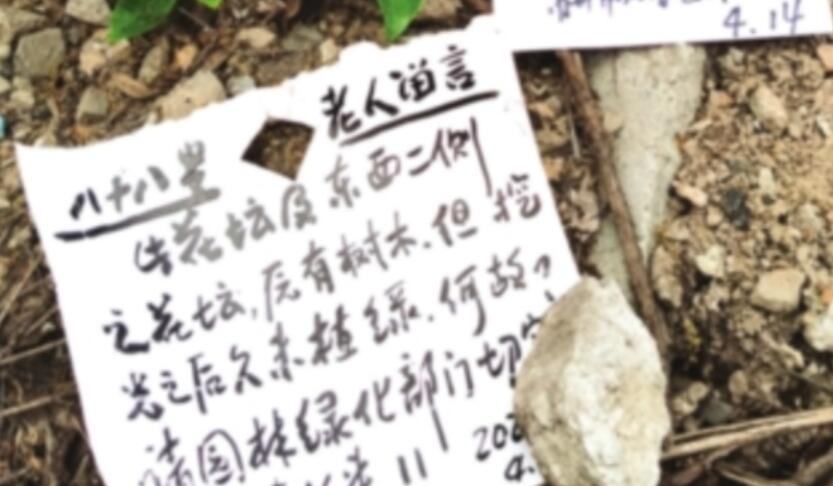 4.14
八十八岁 老人留言
此花坛及东西二侧
之花坛,原有树木.但挖
光之后久未植绿.何故?
请园林绿化部门切实
202
4.